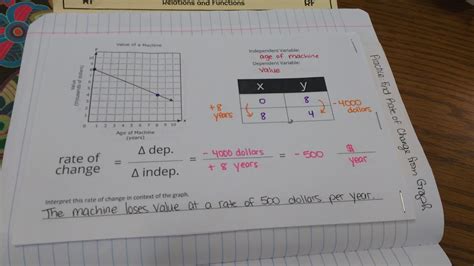 RF
Relations and Functions
RF
Value of a Machine
Value
(thousands of dollars)
Age of Machine
(years)
Independent Variable:
age of machine
Dependent Variable:
value
x y
0 8
8 4
+8
years
-4000
dollars
rate of
change = Δ dep. / Δ indep. = -4000 dollars / +8 years = -500 $ / year
Interpret this rate of change in context of the graph.
The machine loses value at a rate of 500 dollars per year.
Practice: Find Rate of Change from Graph